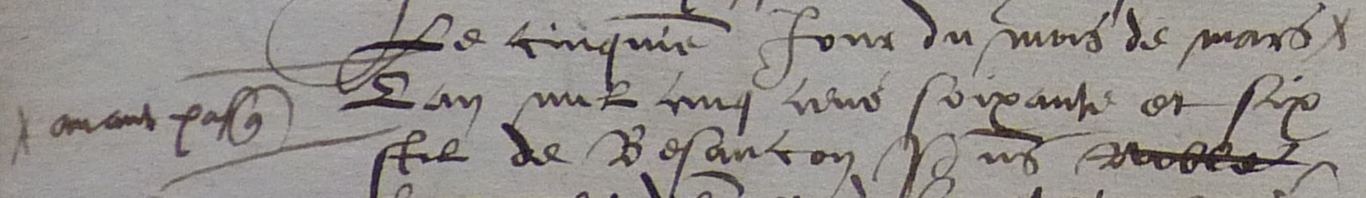 Le cinquie Jour du mois de mars x
Lan mil cinq cens soixante et six
x avant pasq
stil de Besancon Noble